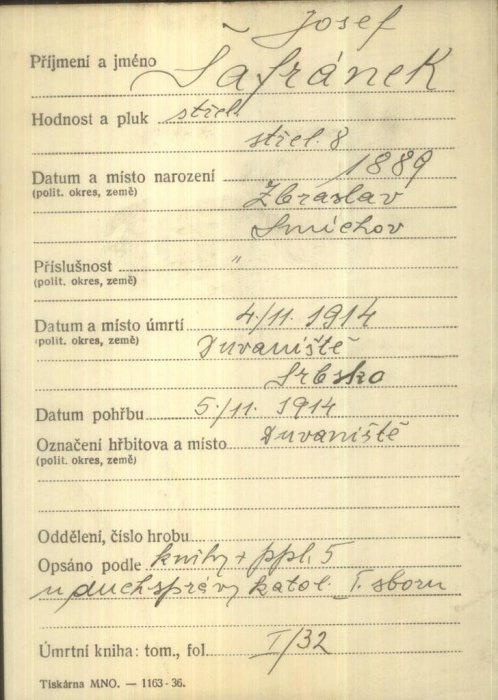 Josef
Příjmení a jméno Šafránek
Hodnost a pluk střel.
střel. 8
Datum a místo narození 1889
(polit. okres, země) Zbraslav
Smíchov
Příslušnost "
(polit. okres, země)
Datum a místo úmrtí 4./11. 1914
(polit. okres, země) Duvaniště
Srbsko
Datum pohřbu 5./11. 1914
Označení hřbitova a místo Duvaniště
(polit. okres, země)
Oddělení, číslo hrobu
Opsáno podle knihy + ppl. 5
u duch. správy katol. I. sboru
Úmrtní kniha: tom., fol. I/32
Tiskárna MNO. — 1163-36.